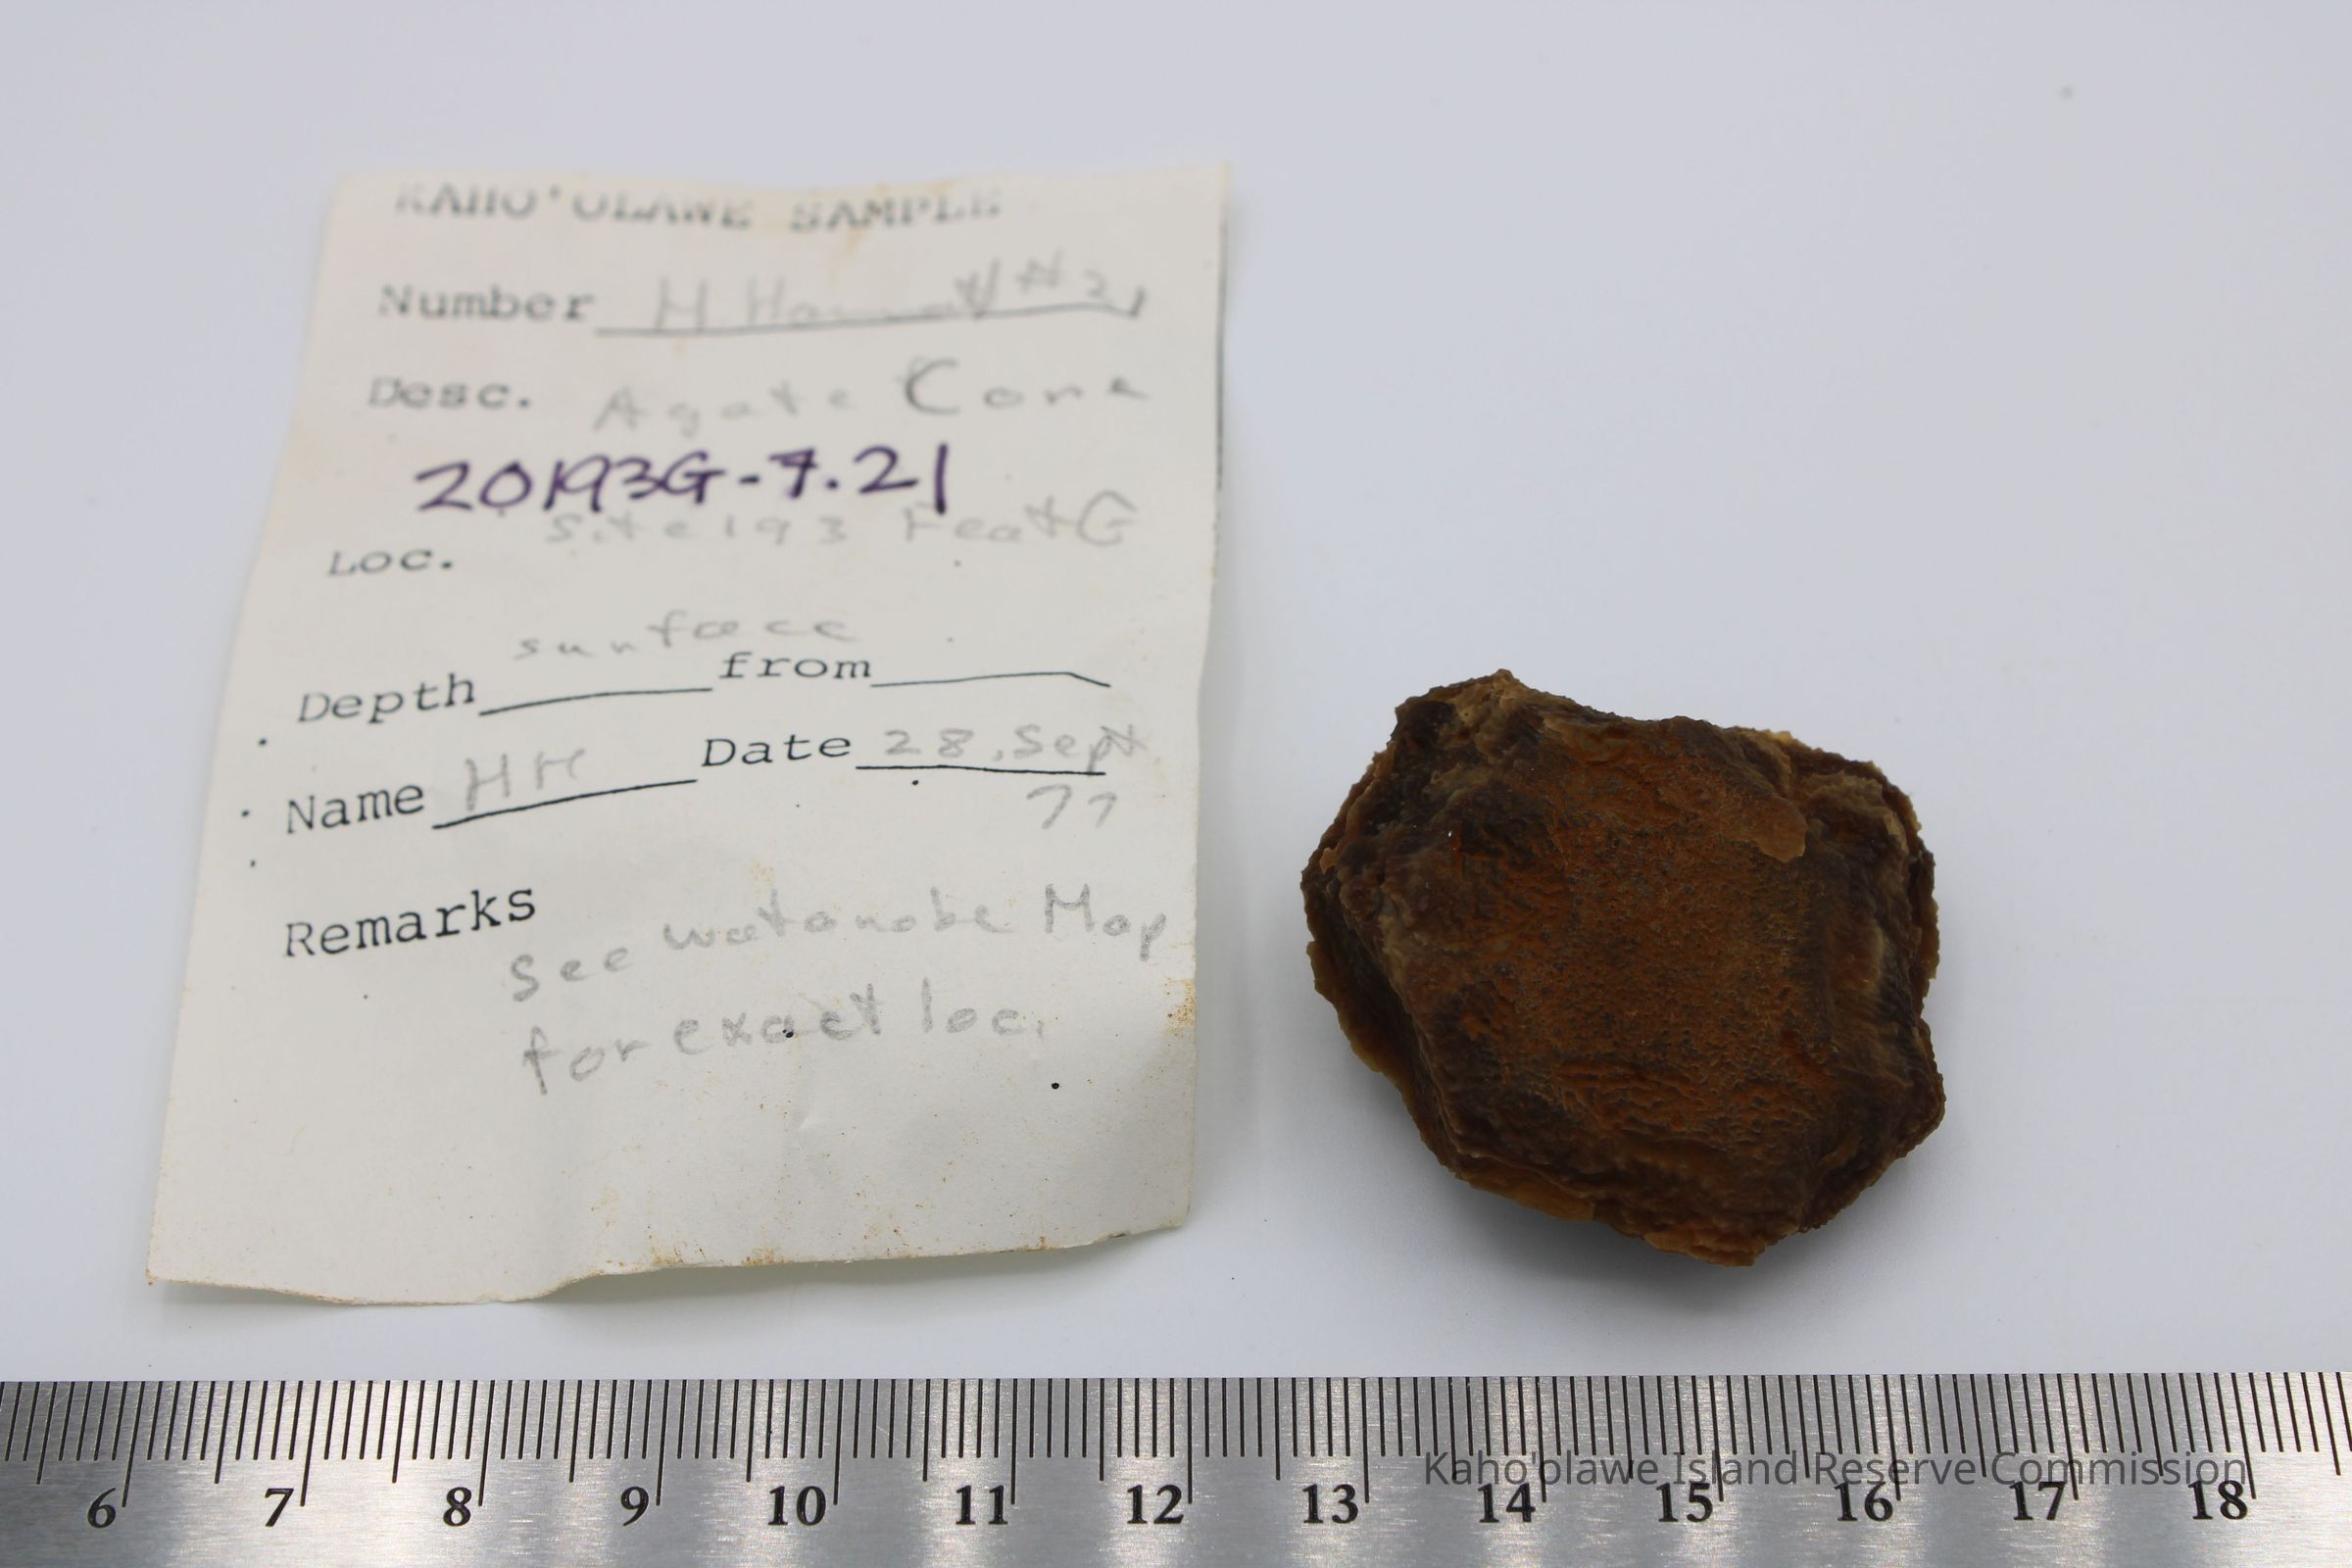 KAHO'OLAWE SAMPLE
Number H. #21
Desc. Agate Core
20193G-7.21
Loc. Site 193 Feat G
Depth surface from
Name HH Date 28. Sept
77
Remarks
See Watanabe Map
for exact loc.
Kaho'olawe Island Reserve Commission
6 7 8 9 10 11 12 13 14 15 16 17 18